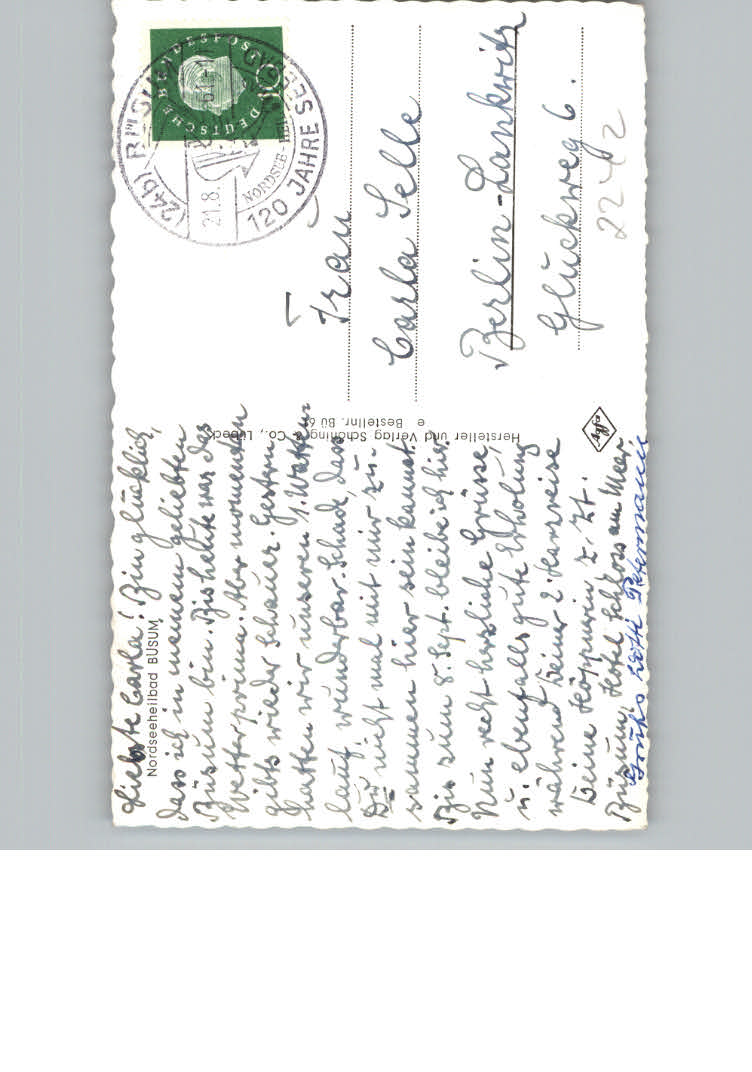 Nordseeheilbad BÜSUM
Liebste Carla! Bin glücklich,
dass ich in meinem geliebten
Büsum bin. Bis heute war das
Wetter prima. Aber momentan
gibts wieder Schauer. Gestern
hatten wir unseren 1. Watten
lauf, wunderbar. Schade, dass
Du nicht mal mit mir zu-
sammen hier sein kannst.
Bis zum 8. Sept. bleibe ich hier.
Nun recht herzliche Grüsse
u. ebenfalls gute Erholung
während Deiner 2. Kurreise
Deine z. Zt.
Büsum, Hotel Schloss am Meer.
Petermann
Hersteller und Verlag Schöning & Co., Lübeck
Bestellnr. Bü 6
Agfa
DEUTSCHE BUNDESPOST
(24b) BÜSUM
21.8.61
NORDSEE-HEIL
120 JAHRE SEEBAD
Frau
Carla Selle
Berlin-Lankwitz
Glückweg 6.